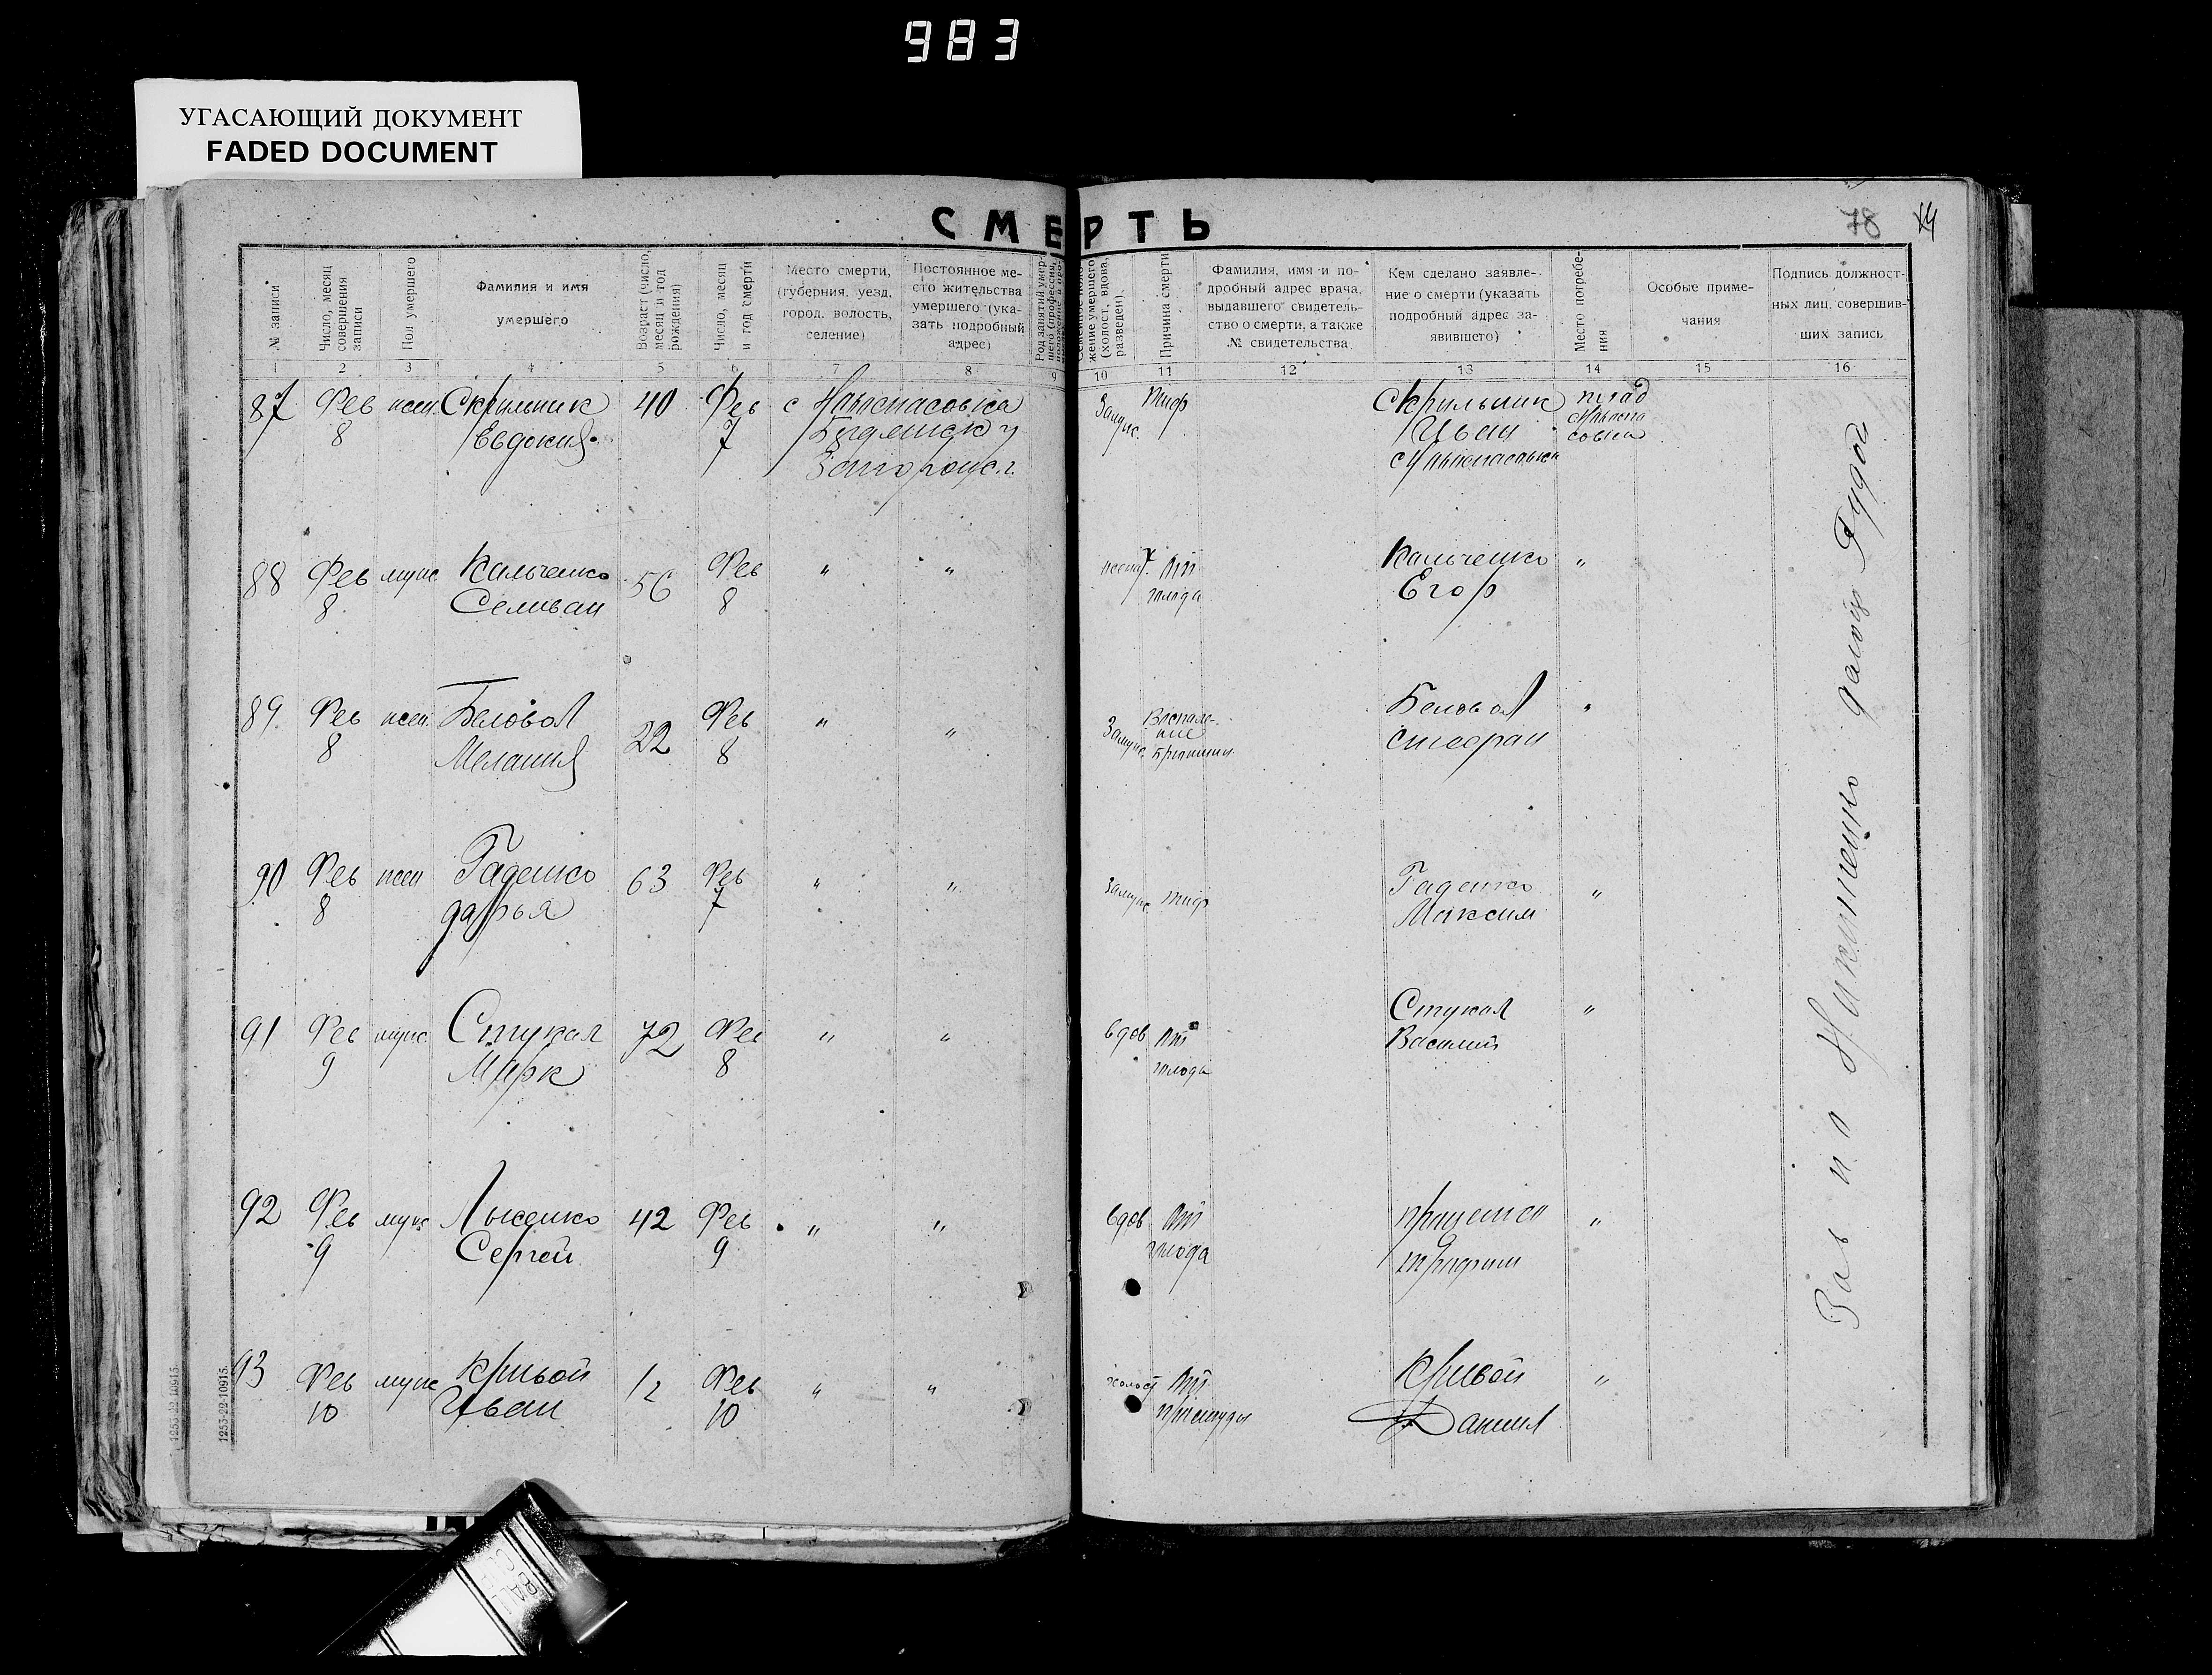 983
УГАСАЮЩИЙ ДОКУМЕНТ
FADED DOCUMENT
СМЕРТЬ
78
№ записи
Число, месяц совершения записи
Пол умершего
Фамилия и имя умершего
Возраст (число, месяц и год рождения)
Число, месяц и год смерти
Место смерти, (губерния, уезд, город, волость, селение)
Постоянное место жительства умершего (указать подробный адрес)
Род занятий умершего (профессия,
жение умершего (холост, вдова, разведен)
Причина смерти
Фамилия, имя и подробный адрес врача, выдавшего свидетельство о смерти, а также № свидетельства
Кем сделано заявление о смерти (указать подробный адрес заявившего)
Место погребения
Особые примечания
Подпись должностных лиц, совершивших запись
1 2 3 4 5 6 7 8 9 10 11 12 13 14 15 16
87 Фев 8 жен Скрильник Евдокия 40 Фев 7 с Замуж. тиф Скрильник Иван
88 Фев 8 муж Кальченко Селиван 56 Фев 8 " " От голода Кальченко Егор "
89 Фев 8 жен Беловол Мелания 22 Фев 8 " " Замуж. Воспаление Беловол Стефан "
90 Фев 8 жен Гаденко Дарья 63 Фев 7 " " Замуж. тиф Гаденко Максим "
91 Фев 9 муж Стукал Марк 72 Фев 8 " " вдов От голода Стукал Василий "
92 Фев 9 муж Лысенко Сергей 42 Фев 9 " " вдов От голода "
93 Фев 10 муж Кривой Иван 12 Фев 10 " " холост От простуды Кривой Даниил "
1253-22-10915
1253-22-10915